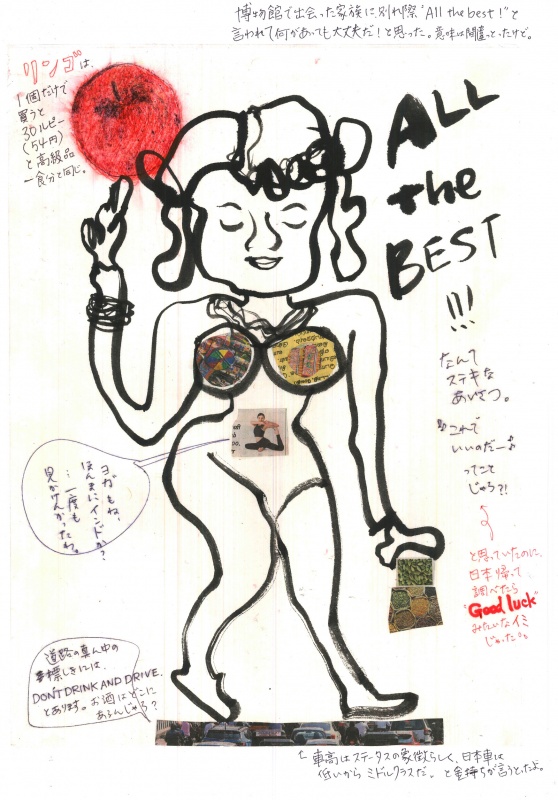 博物館で出会った家族に、別れ際"All the best!"と
言われて何があっても大丈夫だ！と思った。意味は間違っとったけど。
リンゴは、
1個だけで
買うと
30ルピー
(54円)
と高級品
一食分と同じ。
ALL
the
BEST
!!!
なんて
ステキな
あいさつ。
♪これで
いいのだー♪
ってこと
じゃろ?!
と思っていたのに、
日本帰って
調べたら
"Good luck"
みたいなイミ
じゃった。
ヨガもね、
ほんまにインドか?
…一度も
見かけんかったわ。
道路の真ん中の
標しきには、
DON'T DRINK AND DRIVE.
とあります。お酒はどこに
あるんじゃろ?
↑車高はステータスの象徴らしく、日本車は
低いからミドルクラスだ。と金持ちが言うとったよ。